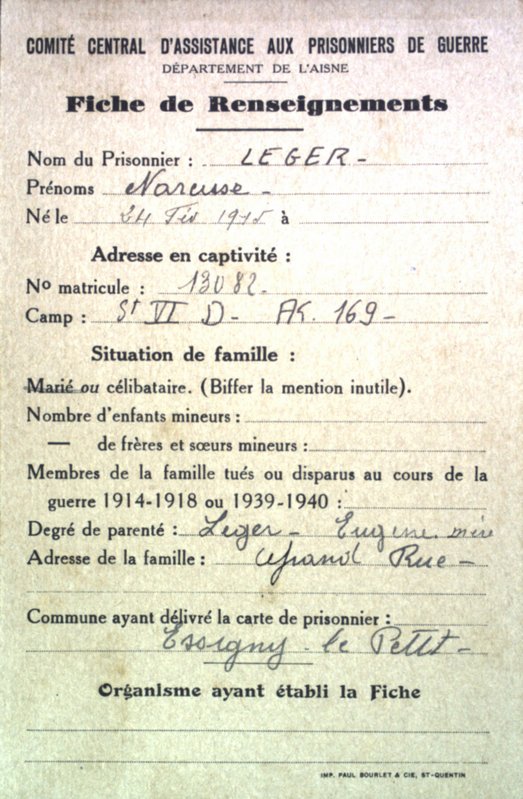 COMITÉ CENTRAL D'ASSISTANCE AUX PRISONNIERS DE GUERRE
DÉPARTEMENT DE L'AISNE
Fiche de Renseignements
Nom du Prisonnier : LEGER -
Prénoms Narcisse -
Né le 24 Fév 1915 à
Adresse en captivité :
No matricule : 13082 -
Camp : St VI D - AK. 169 -
Situation de famille :
Marié ou célibataire. (Biffer la mention inutile).
Nombre d'enfants mineurs :
— de frères et sœurs mineurs :
Membres de la famille tués ou disparus au cours de la
guerre 1914-1918 ou 1939-1940 :
Degré de parenté : Leger - Eugene
Adresse de la famille : Grand Rue -
Commune ayant délivré la carte de prisonnier :
Essigny - le Petit -
Organisme ayant établi la Fiche
IMP. PAUL BOURLET & CIE, ST-QUENTIN